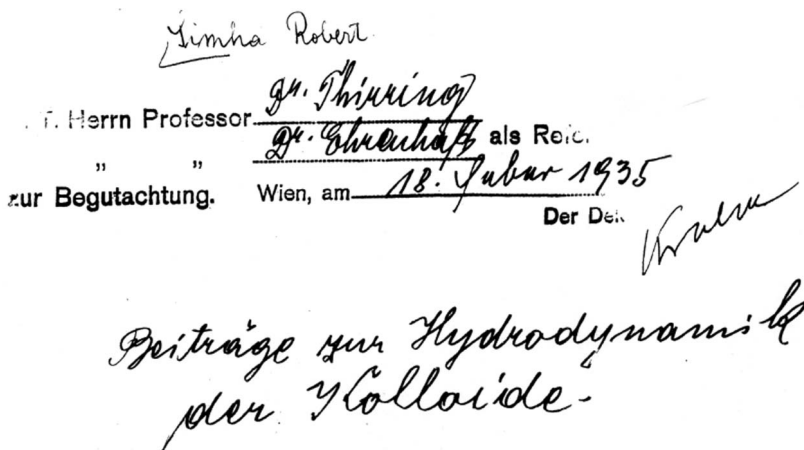 Simha Robert
Herrn Professor Dr. Thirring
„ „ Dr. Ehrenhaft als Ref.
zur Begutachtung. Wien, am 18. 1935
Der Dek.
Beiträge zur Hydrodynamik
der Kolloide.